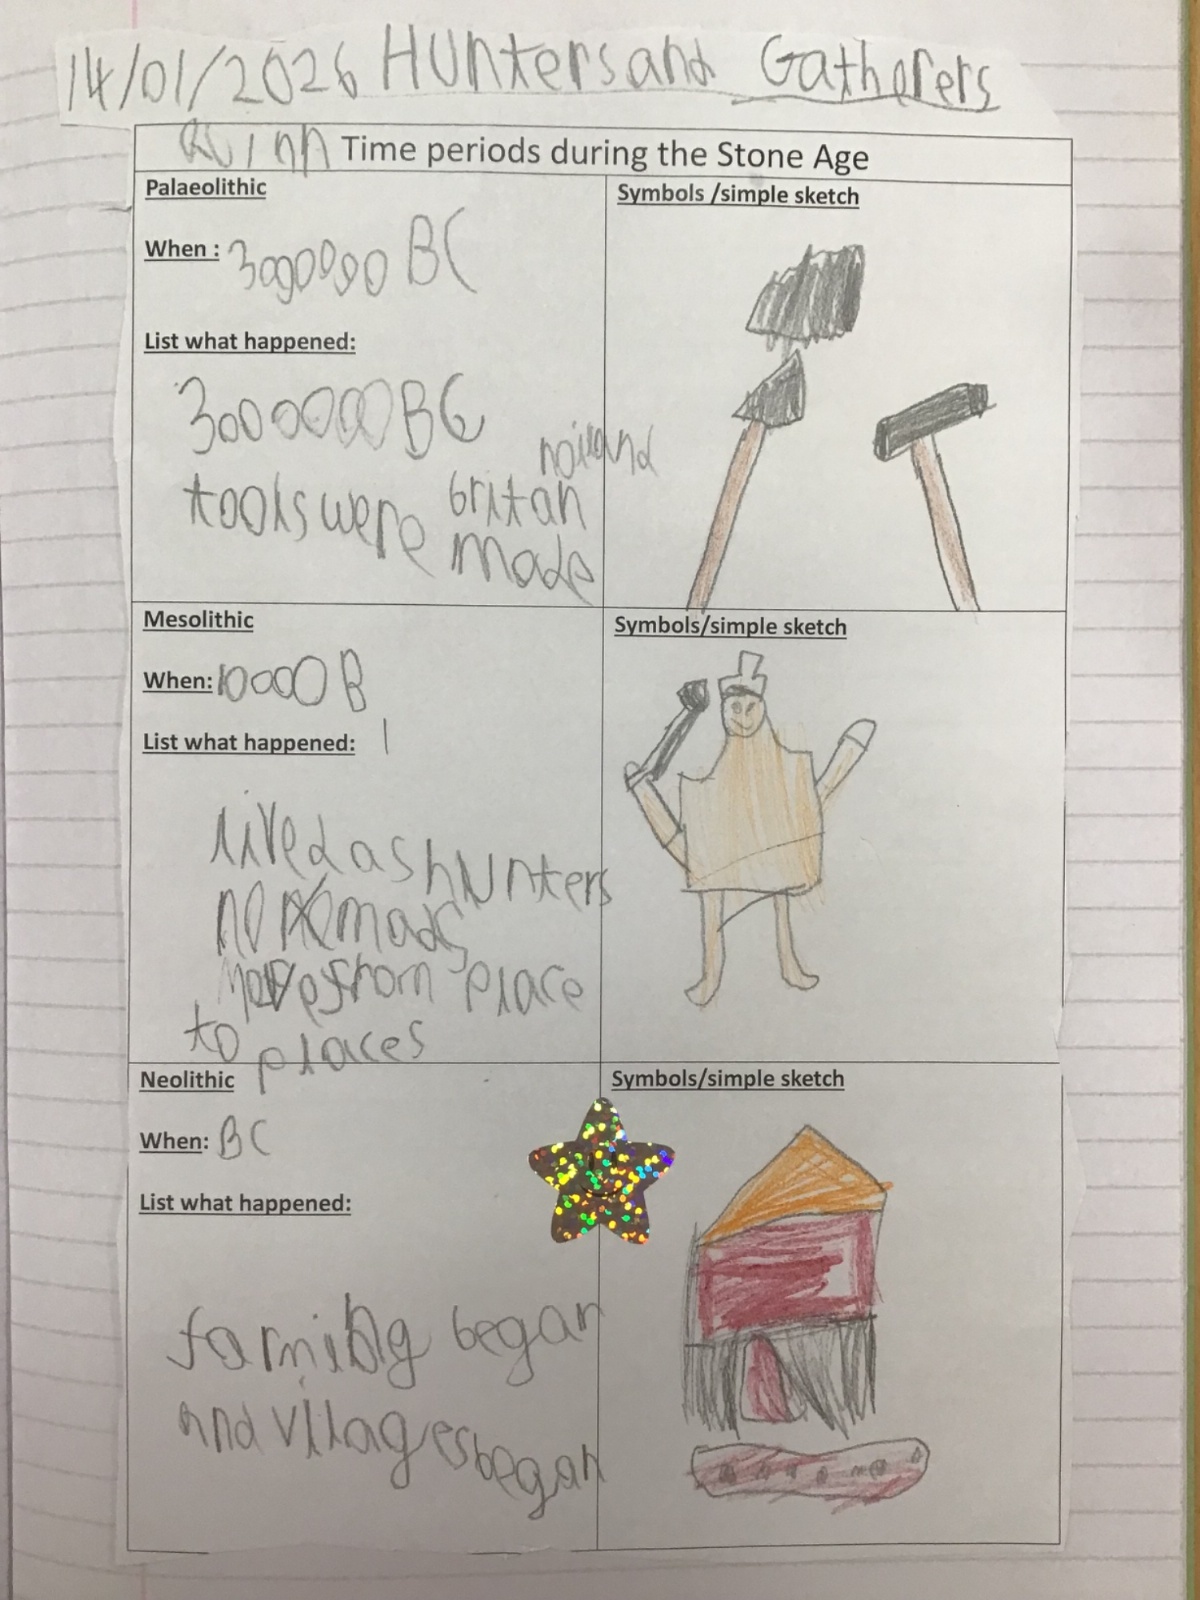 14/01/2026 Hunters and Gatherers
Quinn Time periods during the Stone Age
Palaeolithic
Symbols /simple sketch
When : 3000000 BC
List what happened:
3000000 BC
tools were britan
made
Mesolithic
Symbols/simple sketch
When: 10000 B
List what happened:
lived as hunters
move from place
to places
Neolithic
Symbols/simple sketch
When: BC
List what happened:
farming began
and villages began